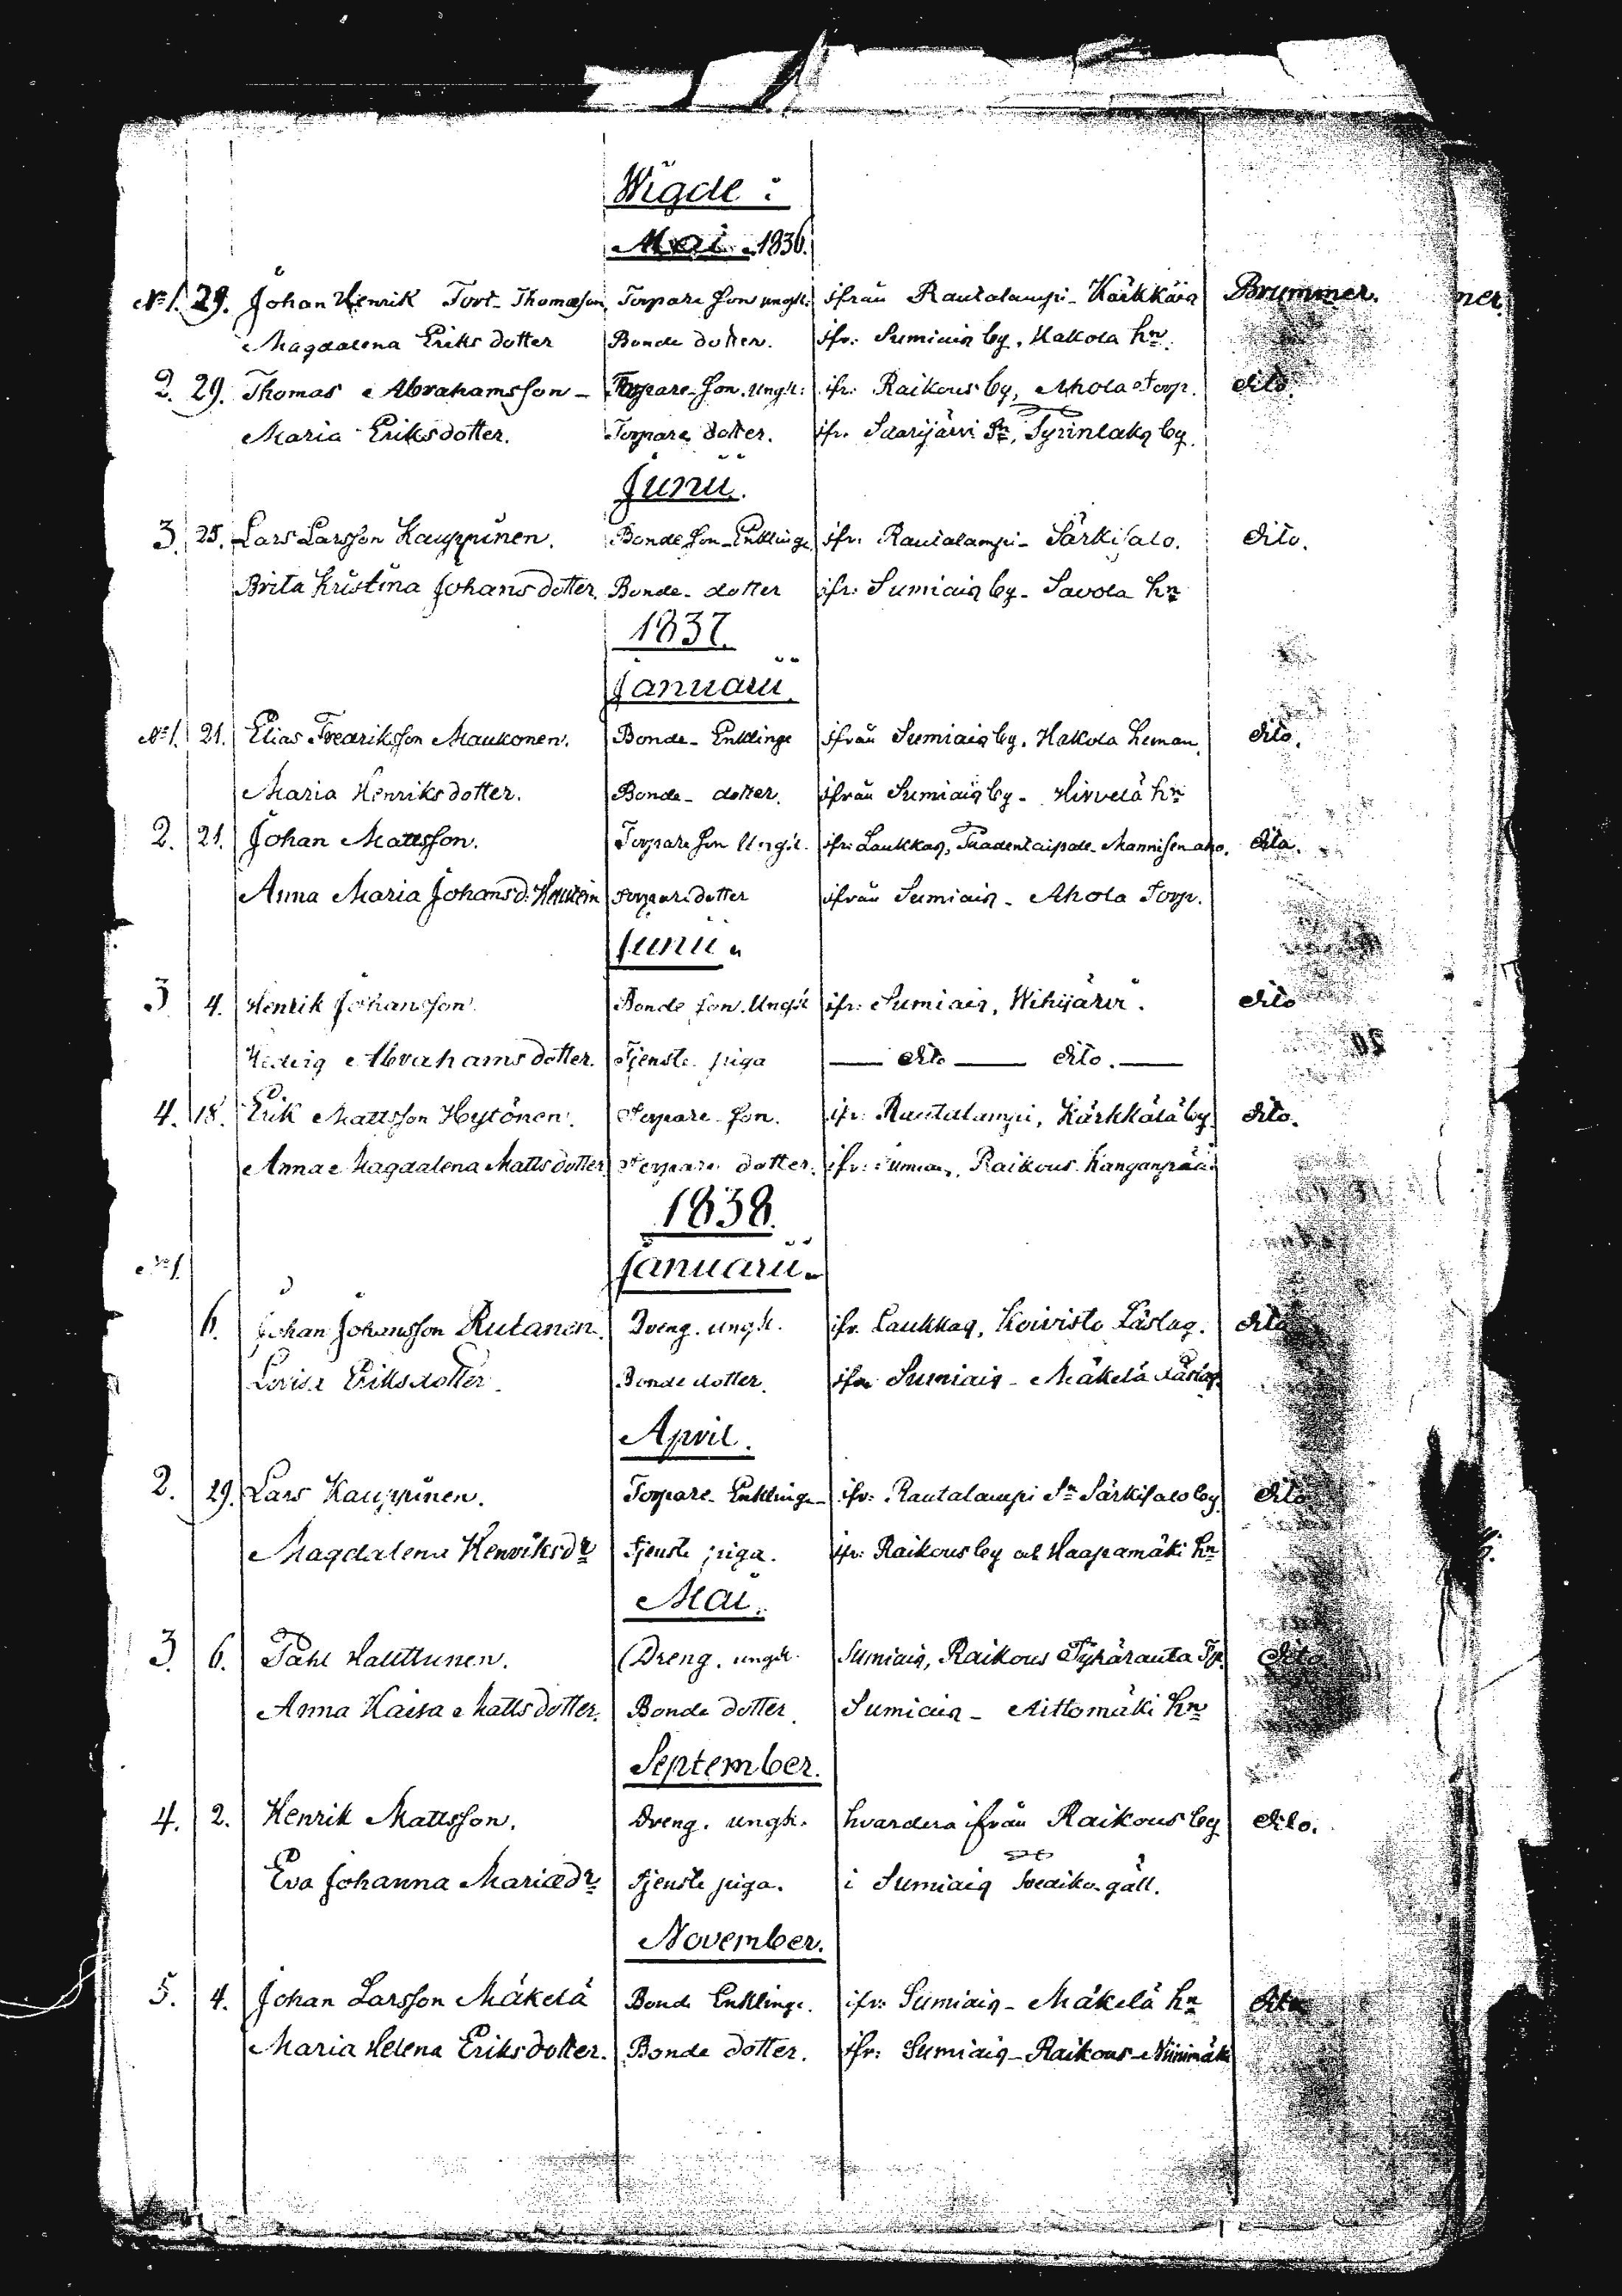 Wigde:
Maii 1836.
No 1. 29. Johan Henrik Thomasson Torpare son ungk. ifrån Rautalampi - Kärkkäis Brummer.
Magdalena Eriks dotter Bonde dotter. ifr: Sumiais by, Hakola hn.
2. 29. Thomas Abrahamsson - Torpare-son. Ungk: ifr: Raikous by, Ahola Torp. dito
Maria Eriksdotter. Torpare dotter. ifr. Saarijärvi Sn, by.
Junii.
3. 25. Lars Larsson Kauppinen. Bonde son - Enklinge ifr: Rautalampi - Särkisalo. dito.
Brita Kristina Johans dotter. Bonde - dotter ifr: Sumiais by - Savola hn
1837.
Januarii.
No 1. 21. Elias Fredriksson Maukonen. Bonde - Enklinge ifrån Sumiais by. Hakola heman. dito.
Maria Henriks dotter. Bonde - dotter. ifrån Sumiais by - Hirvelä hn
2. 21. Johan Mattsson. Torpare son Ungk. ifr: Laukkas, Mannisenaho. dito.
Anna Maria Johansd: Torpare dotter ifrån Sumiais - Ahola Torp.
Junii
3 4. Henrik Johansson. Bonde son. Ungk ifr: Sumiais, Wihijärvi. dito
Hedvig Abrahams dotter. Tjenste piga — dito — dito. —
4. 18. Erik Mattsson Hytönen. Torpare - son. ifr: Rautalampi, Kärkkälä by dito.
Anna Magdalena Matts dotter Torpare dotter. ifr: Sumiais, Raikous - Kanganpää
1838.
Januarii
No 1.
6. Johan Johansson Rutanen. Dreng. ungk. ifr. Laukkas, Koivisto Lästug. dito
Lovisa Eriksdotter. Bonde dotter. ifr Sumiais - Mäkelä
April.
2. 29. Lars Kauppinen. Torpare - Enklinge - ifr: Rautalampi Sn Särkisalo by dito
Magdalena Henriksdr Tjenste piga. ifr: Raikous by och Haapamäki hn
Maii.
3. 6. Påhl Hauttunen. Dreng. ungk. Sumiais, Raikous Tp. dito
Anna Kaisa Matts dotter. Bonde dotter. Sumiais - Aittomäki hn
September.
4. 2. Henrik Mattsson. Dreng. ungk. hvardera ifrån Raikous by dito.
Eva Johanna Mariædr Tjenste piga. i Sumiais gäll.
November.
5. 4. Johan Larsson Mäkelä Bonde Enklinge. ifr: Sumiais - Mäkelä hn dito
Maria Helena Eriks dotter. Bonde dotter. ifr: Sumiais - Raikous - Niinimäki